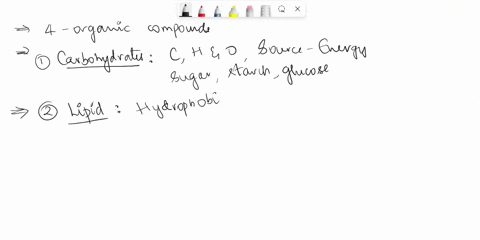 ⇒ 4-organic compounds
⇒ ① Carbohydrates : C, H & O, Source - Energy
Sugar, starch, glucose
⇒ ② Lipid : Hydrophobi